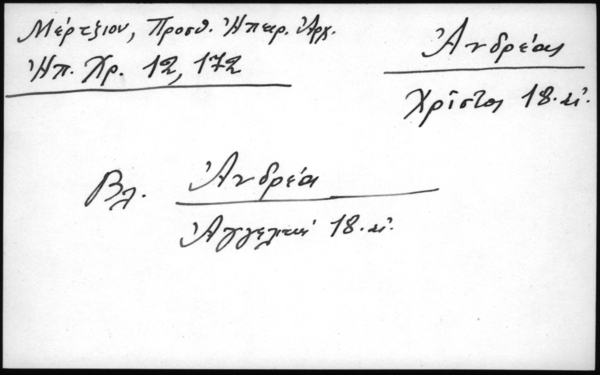 Μέρτζιου, Προσθ. Ἠπειρ. Ἀρχ.
Ἠπ. Χρ. 12, 172
Ἀνδρέας
Χρῖστος 18. αἰ.
Βλ. Ἀνδρέα
Ἀγγελικὴ 18. αἰ.